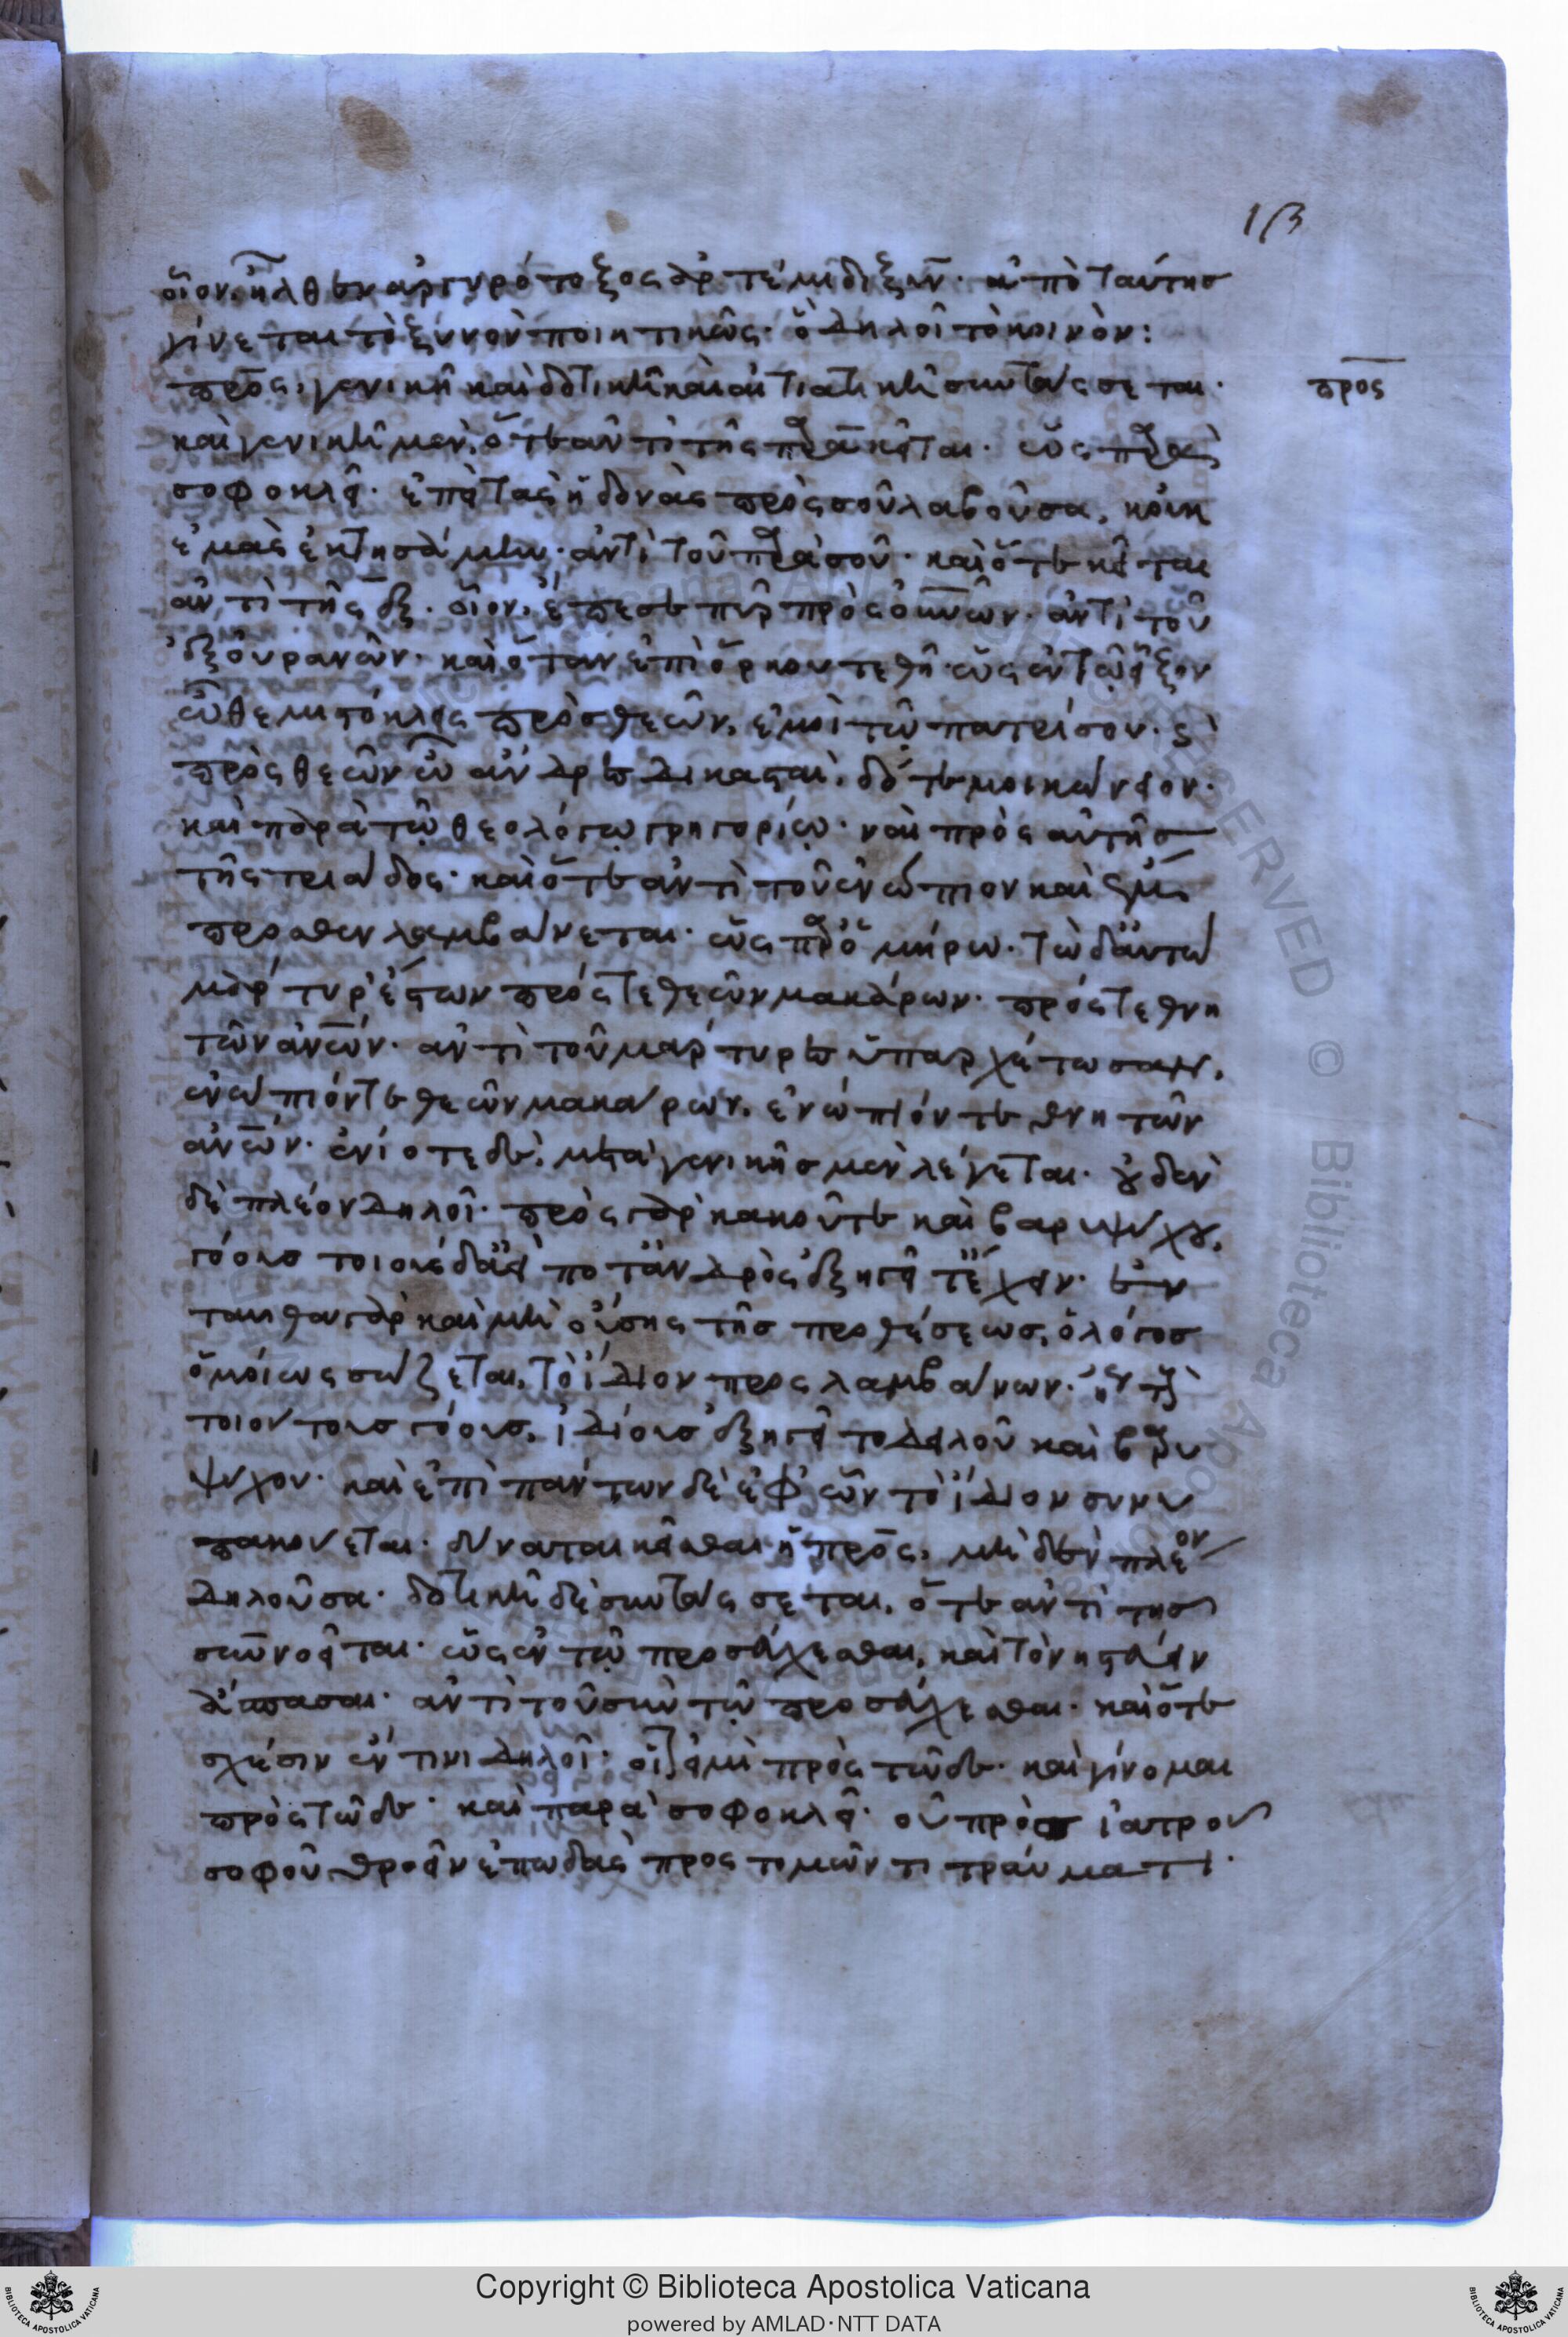 113
οἷον, ἦλθεν ἀργυρότοξος ἀρτέμιδι ξύν. ἀπὸ ταύτης
γίνεται τὸ ξυνὸν ποιητικῶς. ὃ δηλοῖ τὸ κοινόν:
πρός, γενικῆ καὶ δοτικῆ καὶ αἰτιατικῆ συντάσσεται.
πρός
καὶ γενικῆ μὲν, ὅτε ἀντὶ τῆς παρα κεῖται. ὡς παρὰ
σοφοκλεῖ. ἐπεὶ τὰς ἡδονὰς πρὸς σοῦ λαβοῦσα,
ἐμὰς ἐκτησάμην. ἀντὶ τοῦ παρὰ σοῦ. καὶ ὅτε κεῖται
ἀντὶ τῆς ἐξ. οἷον, ἔπεσε πῦρ πρὸς οὐνῶν. ἀντὶ τοῦ
ἐξ οὐρανῶν. καὶ ὅταν ἐπὶ ὅρκου τεθῆ. ὡς ἐν τῶ εἶξον
ὦ θεμιστόκλεις πρὸς θεῶν, ἐμοὶ τῶ πατρί σου. καὶ
πρὸς θεῶν ὦ ἄνδρες δικασταὶ, δότε μοι κἂν
καὶ παρὰ τῶ θεολόγω γρηγορίω. ναὶ πρὸς αὐτῆς
τῆς τριάδος. καὶ ὅτε ἀντὶ τοῦ ἐνώπιον καὶ
προσθεν λαμβάνεται. ὡς παρ ὁμήρω. τὼ δ' αὐτὼ
μάρτυρ' ἔστων πρός τε θεῶν μακάρων. πρός τε θνη
τῶν ἀνῶν. ἀντὶ τοῦ μάρτυρες ὑπαρχέτωσαν,
ἐνώπιόν τε θεῶν μακάρων, ἐνώπιόν τε θνητῶν
ἀνῶν. ἐνίοτε δὲ, μετὰ γενικῆς μὲν λέγεται. οὐδὲν
δὲ πλέον δηλοῖ. πρὸς γὰρ κακοῦ τε καὶ βαρυψύχου,
γόους τοιούσδ' ἀεί ποτ' ἀνδρὸς ἐξηγεῖτ' ἔχειν. ἐν
ταυθα γὰρ καὶ μὴ οὔσης τῆς προθέσεως, ὁ λόγος
ὁμοίως σώζεται, τὸ ἴδιον προσλαμβάνων.
τοιούτους γόους, ἰδίους ἐξηγεῖτο δειλοῦ καὶ βαρυ
ψύχου. καὶ ἐπὶ πάντων δὲ ἐφ' ὧν τὸ ἴδιον συνυ
πακούεται. δύναται κεῖσθαι ἡ πρός, μηδὲν πλέον
δηλοῦσα. δοτικῆ δὲ συντάσσεται, ὅτε ἀντὶ τῆς
σὺν κεῖται. ὡς ἐν τῶ προσάχεσθαι, καὶ τὸν
ἅπασαι. ἀντὶ τοῦ σὺν τῶ προσάχεσθαι. καὶ ὅτε
σχέσιν ἔν τινι δηλοῖ. οἷον εἰμὶ πρὸς τῶδε. καὶ γίνομαι
πρὸς τῶδε. καὶ παρὰ σοφοκλεῖ. οὐ πρὸς ἰατροῦ
σοφοῦ θροεῖν ἐπωδὰς πρὸς τομῶντι τραύματι.
Copyright © Biblioteca Apostolica Vaticana
powered by AMLAD · NTT DATA